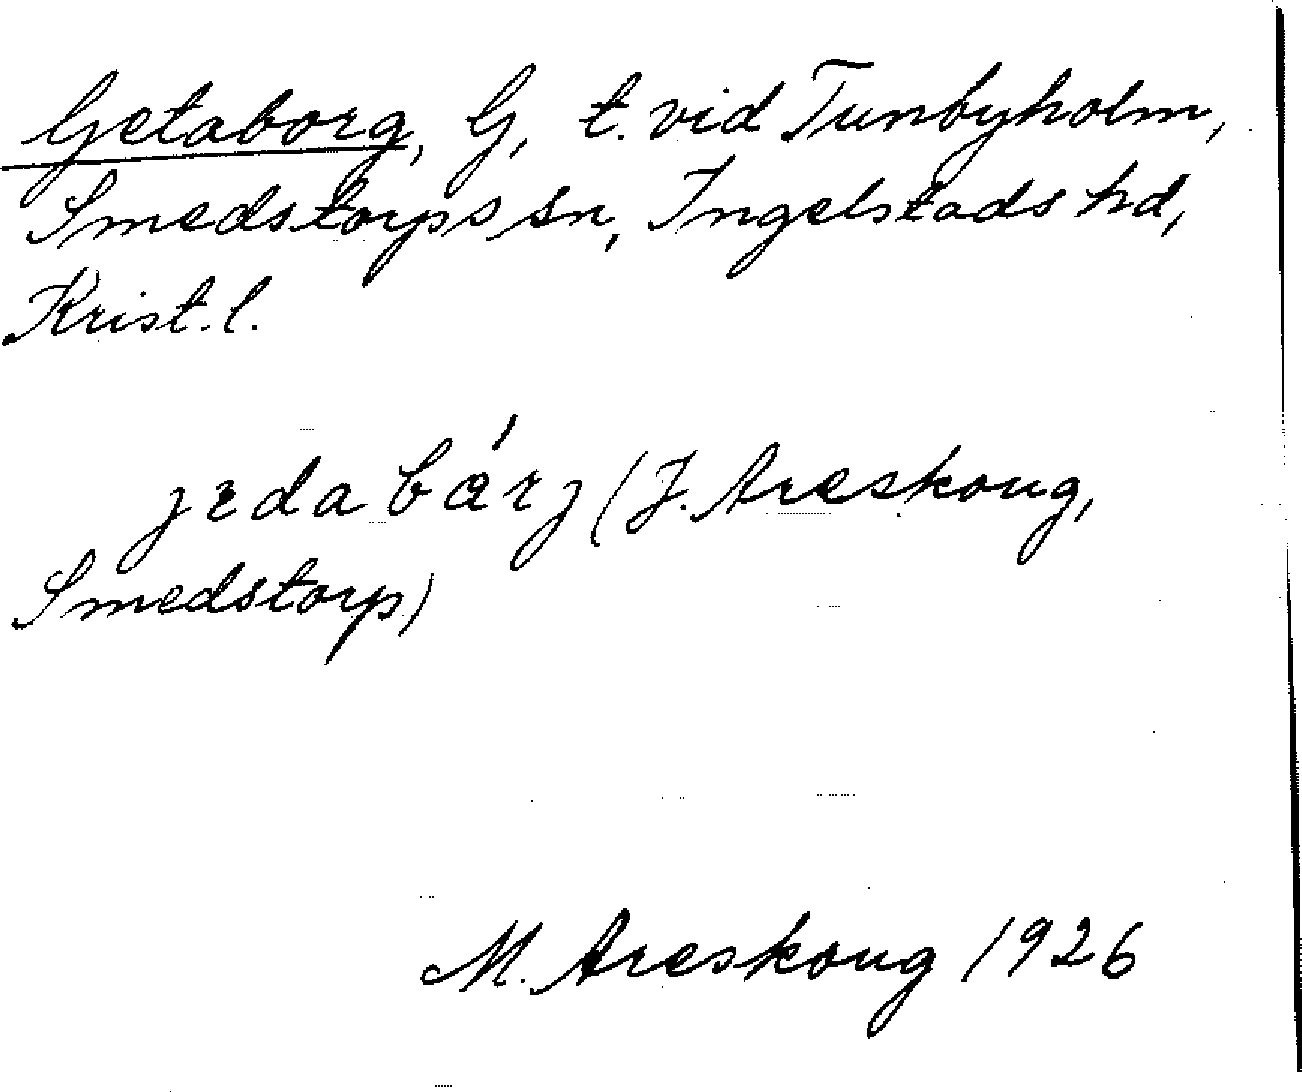 Getaborg, G, t. vid Tunbyholm,
Smedstorps sn, Ingelstads hd,
Krist. l.
jɛdabárj (J. Areskoug,
Smedstorp)
M. Areskoug 1926